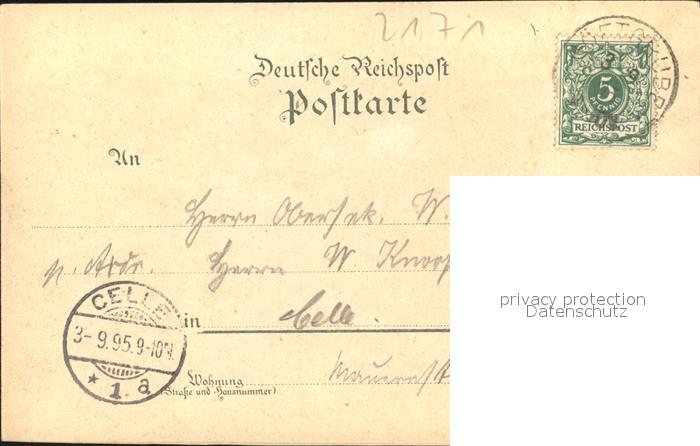 2171
Deutsche Reichspost
Postkarte
5
PFENNIG
REICHSPOST
An
Herrn Obersek. W.
Herrn W
in Celle.
CELLE
3-9.95.9-10V.
* 1. a
Wohnung
(Straße und Hausnummer)
privacy protection
Datenschutz